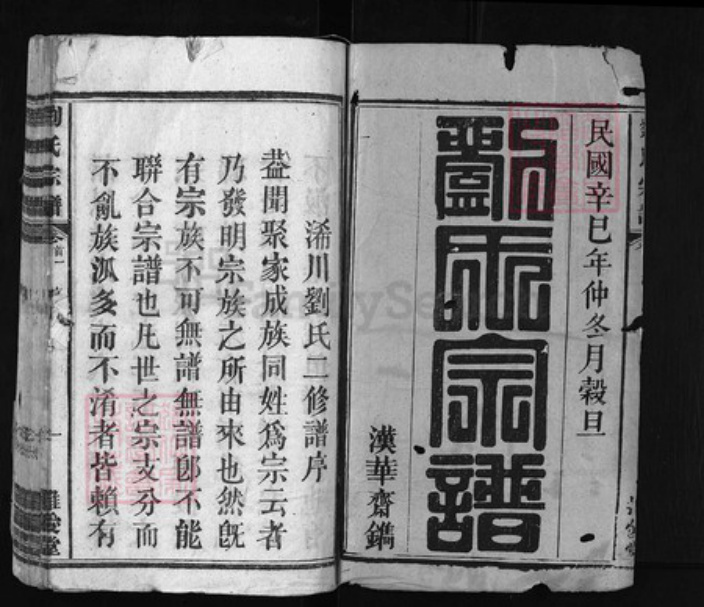 民國辛巳年仲冬月穀旦
劉氏宗譜
漢華齋鐫
浠川劉氏二修譜序
盖聞聚家成族同姓爲宗云者
乃發明宗族之所由來也然旣
有宗族不可無譜無譜卽不能
聯合宗譜也凡世之宗支分而
不亂族派多而不淆者皆賴有
劉氏宗譜
卷首一